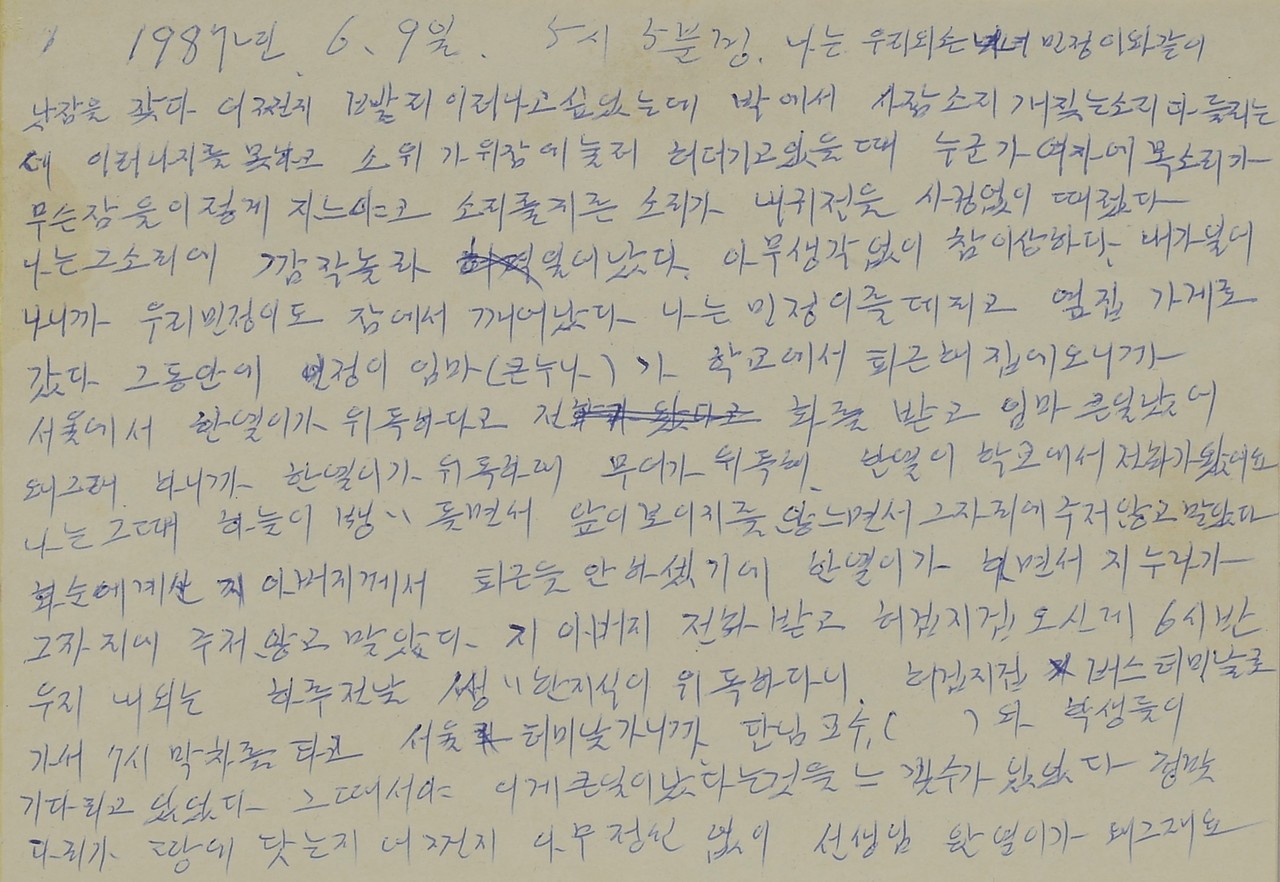 1987년 6. 9일. 5시 5분경. 나는 우리외손녀 민정이와같이
낮잠을 잦다 어쩐지 빨리 이러나고싶었는데 박에서 사람소리 개짖는소리 다 들리는
데 이러나지를 못하고 소위 가위잠에눌려 허더기고있을때 누군가 여자에 목소리가
무슨잠을이렇게 지느야고 소리를지른 소리가 내귀전을 사정없이 때렸다
나는그소리에 깜작놀라 일어났다. 아무생각없이 참이상하다. 내가일어
나니까 우리민정이도 잠에서 깨어났다 나는민정이를데리고 옆집 가게로
갔다 그동안에 민정이 엄마(큰누나)가 학교에서 퇴근해집에오니까
서울에서 한열이가 위독하다고 전화를 받고 엄마 큰일났어
왜그래 하니까 한열이가 위독하데 무어가 위독해. 한열이 학교에서 전화가왔데요
나는그때 하늘이 뺑〃 돌면서 앞이보이지를않느면서 그자리에주저앉고말았다
화순에계신 지아버지께서 퇴근을 안하셨기에 한열이가 하면서 지누나가
그자리에 주저앉고 말았다. 지 아버지 전화받고 허겁지겁 오신게 6시반
우리 내외는 하루전날 쌩〃한지식이 위독하다니. 허겁지겁 버스터미날로
가서 7시 막차를 타고 서울 터미날가니까 단임교수,( )와 학생들이
기다리고 있었다 그때서야 이게큰일이났다는것을 느낄수가 있었다 정말
다리가 땅에 닷는지 어쩐지 아무정신 없이 선생님 한열이가 왜그래요